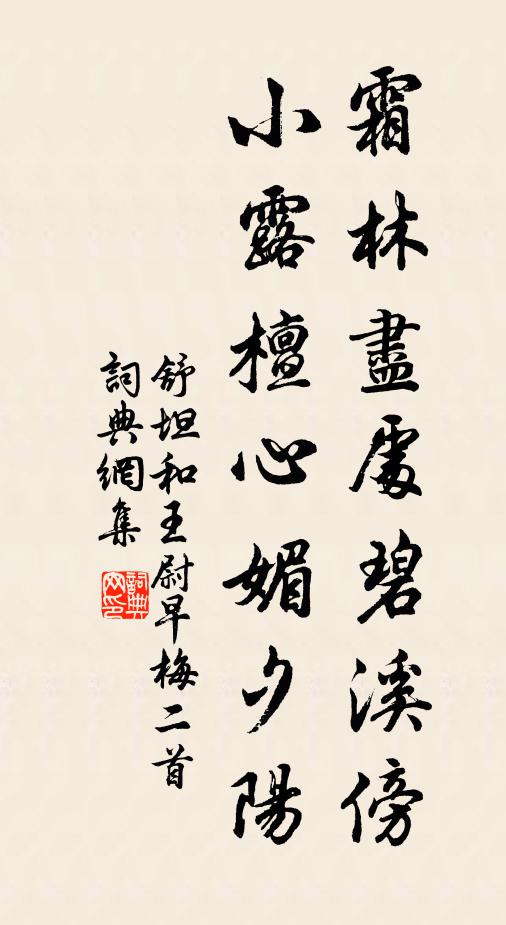 霜林盡處碧溪傍
小露檀心媚夕陽
舒坦和王尉早梅二首
詞典網集
詞典網印